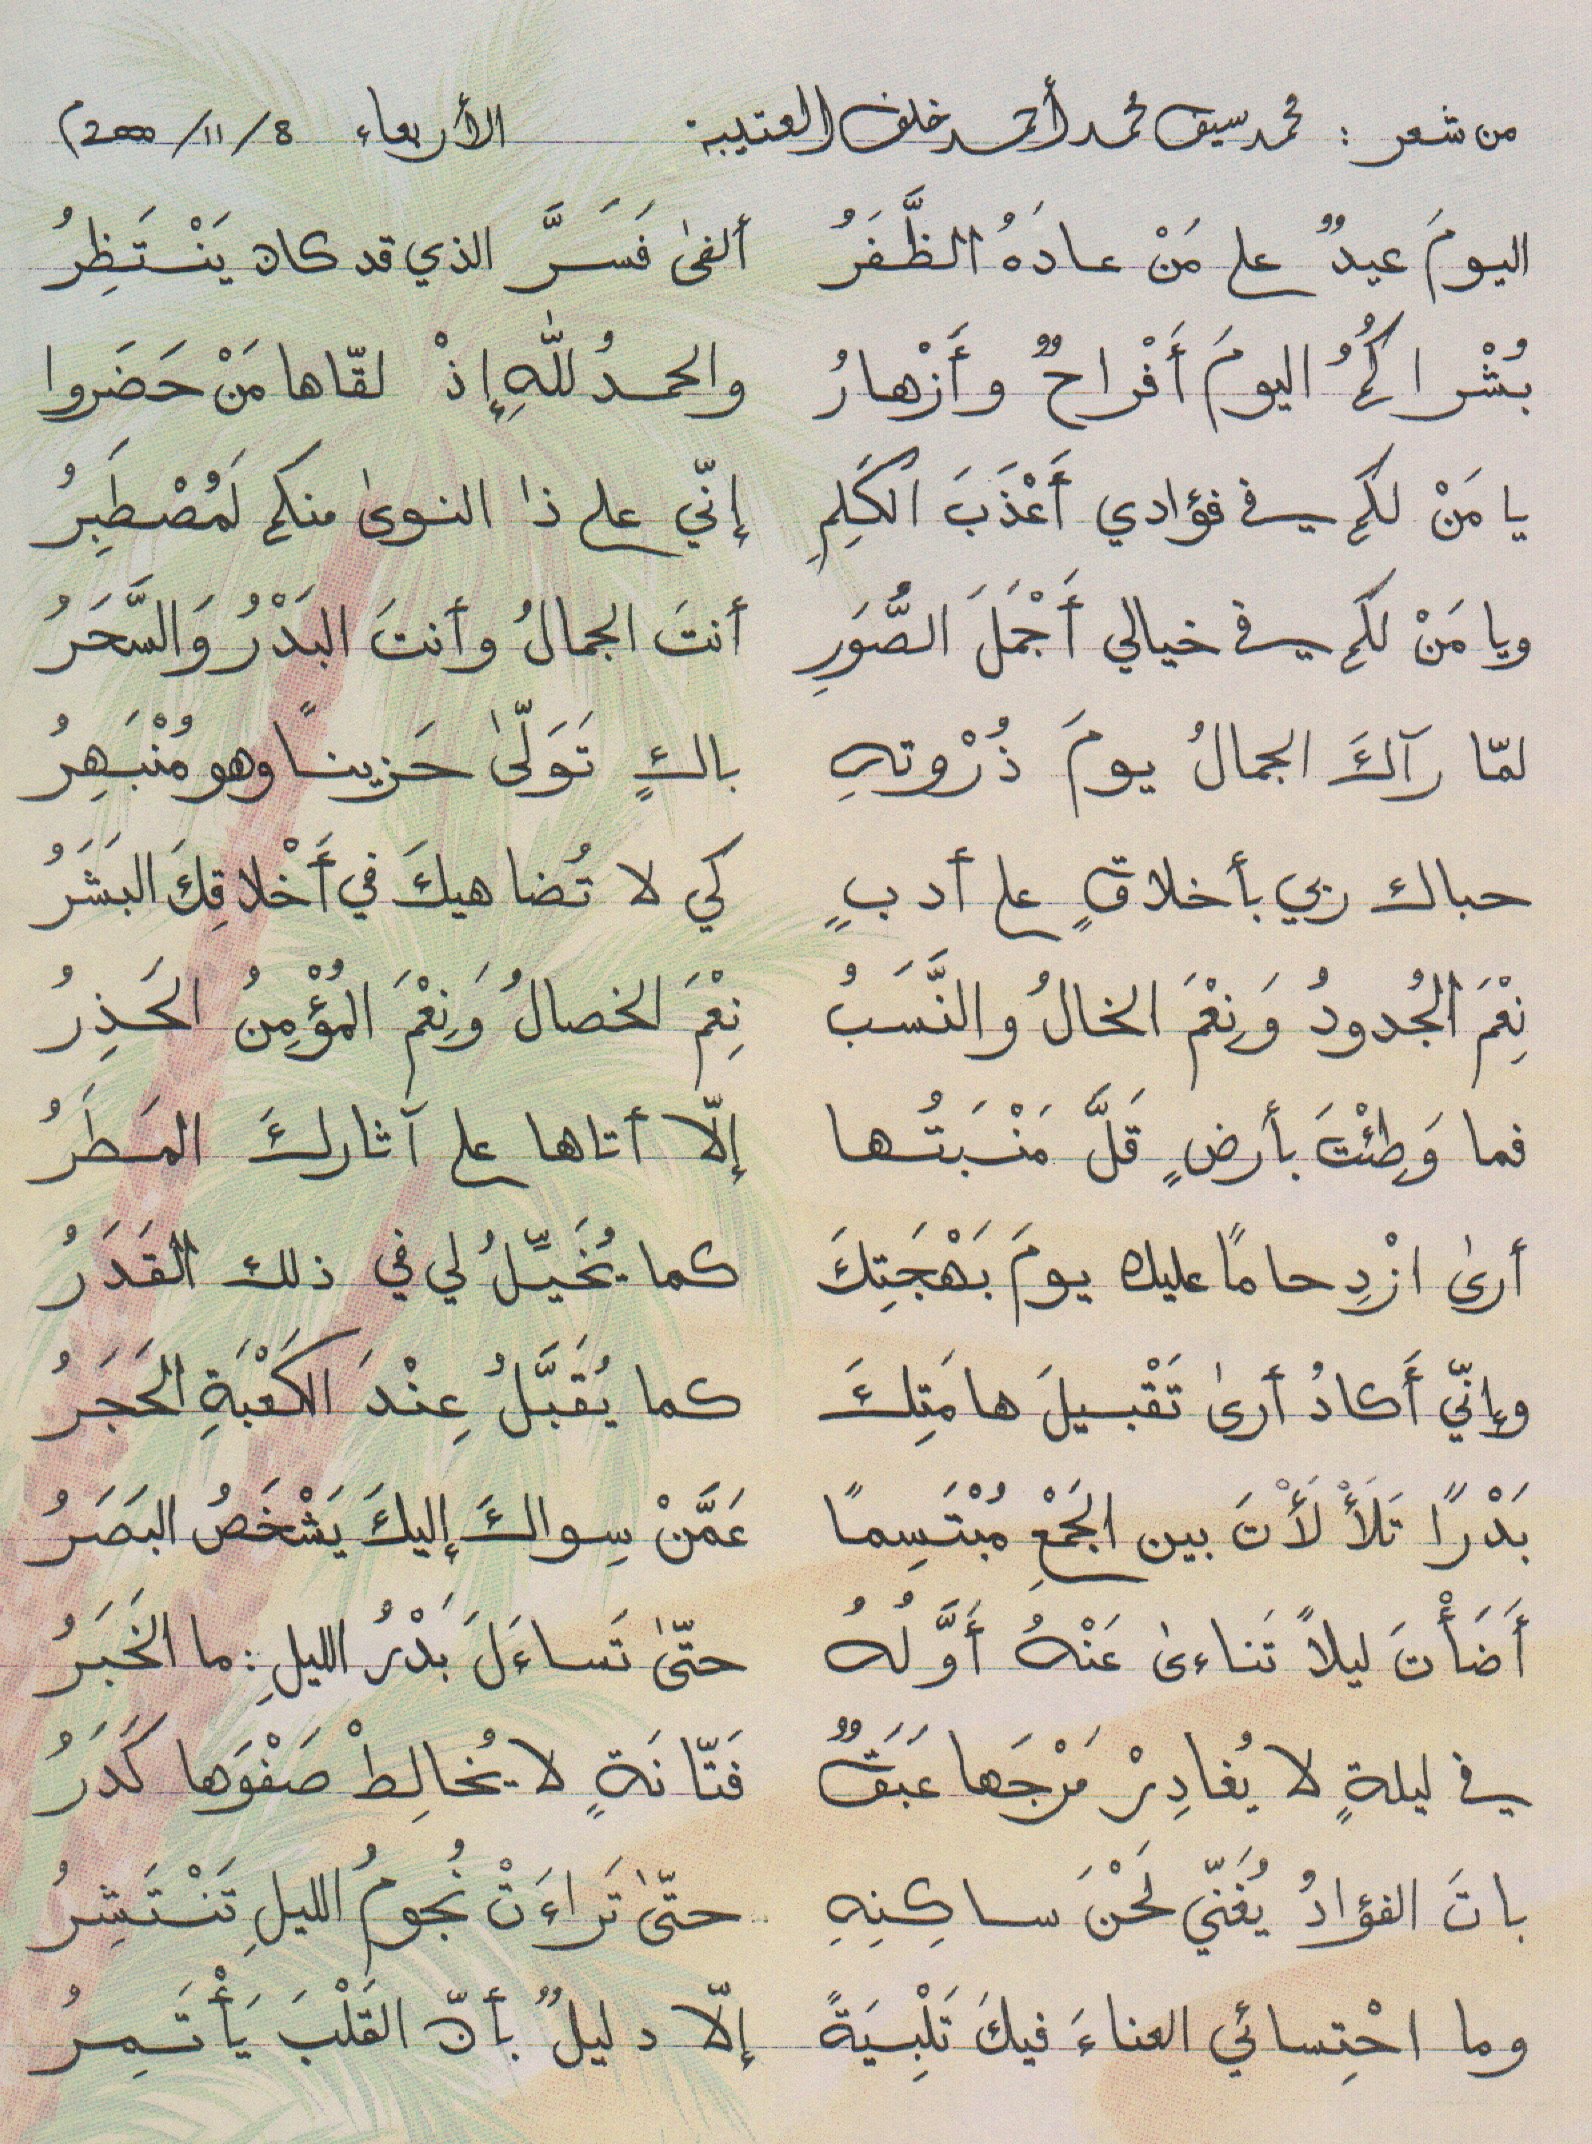 من شعر : محمد سيف محمد أحمد خلف العتيبة الأربعاء 8/11/2000م
اليومَ عيدٌ على مَنْ عادَهُ الظَّفَرُ ألفىٰ فَسَرَّ الذي قد كان يَنْتَظِرُ
بُشْراكُمُ اليومَ أَفْراحٌ وأَزْهارُ والحمدُ للّٰهِ إذْ لقّاها مَنْ حَضَروا
يا مَنْ لكم في فؤادي أَعْذَبَ الكَلِمِ إنّي على ذا النوىٰ منكم لَمُصْطَبِرُ
ويا مَنْ لكم في خيالي أَجْمَلَ الصُّوَرِ أنتَ الجمالُ وأنتَ البَدْرُ وَالسَّحَرُ
لمّا رآكَ الجمالُ يومَ ذُرْوتهِ باكٍ تَوَلّىٰ حَزينًا وهو مُنْبَهِرُ
حباك ربي بأخلاقٍ على أدبٍ كي لا تُضاهيكَ في أَخْلاقِكَ البَشَرُ
نِعْمَ الجُدودُ وَنِعْمَ الخالُ والنَّسَبُ نِعْمَ الخصالُ وَنِعْمَ المُؤْمِنُ الحَذِرُ
فما وَطِئْتَ بأرضٍ قَلَّ مَنْبَتُها إلّا أتاها على آثاركَ المَطَرُ
أرىٰ ازْدِحامًا عليك يومَ بَهْجَتِكَ كما يُخَيَّلُ لي في ذلك القَدَرُ
وإنّي أَكادُ أرىٰ تَقْبيلَ هامَتِكَ كما يُقَبَّلُ عِنْدَ الكَعْبَةِ الحَجَرُ
بَدْرًا تَلَأْلَأْتَ بين الجَمْعِ مُبْتَسِمًا عَمَّنْ سِواكَ إليكَ يَشْخَصُ البَصَرُ
أَضَأْتَ ليلاً تَناءىٰ عَنْهُ أَوَّلُهُ حتّىٰ تَساءَلَ بَدْرُ الليلِ: ما الخَبَرُ
في ليلةٍ لا يُغادِرْ مَرْجَها عَبَقٌ فَتّانَةٍ لا يُخالِطْ صَفْوَها كَدَرُ
باتَ الفؤادُ يُغَنّي لَحْنَ ساكِنِهِ حتّىٰ تَراءَتْ نُجومُ الليلِ تَنْتَثِرُ
وما احْتِسائي العناءَ فيكَ تَلْبِيَةً إلّا دليلٌ بأنّ القَلْبَ يَأْتَمِرُ